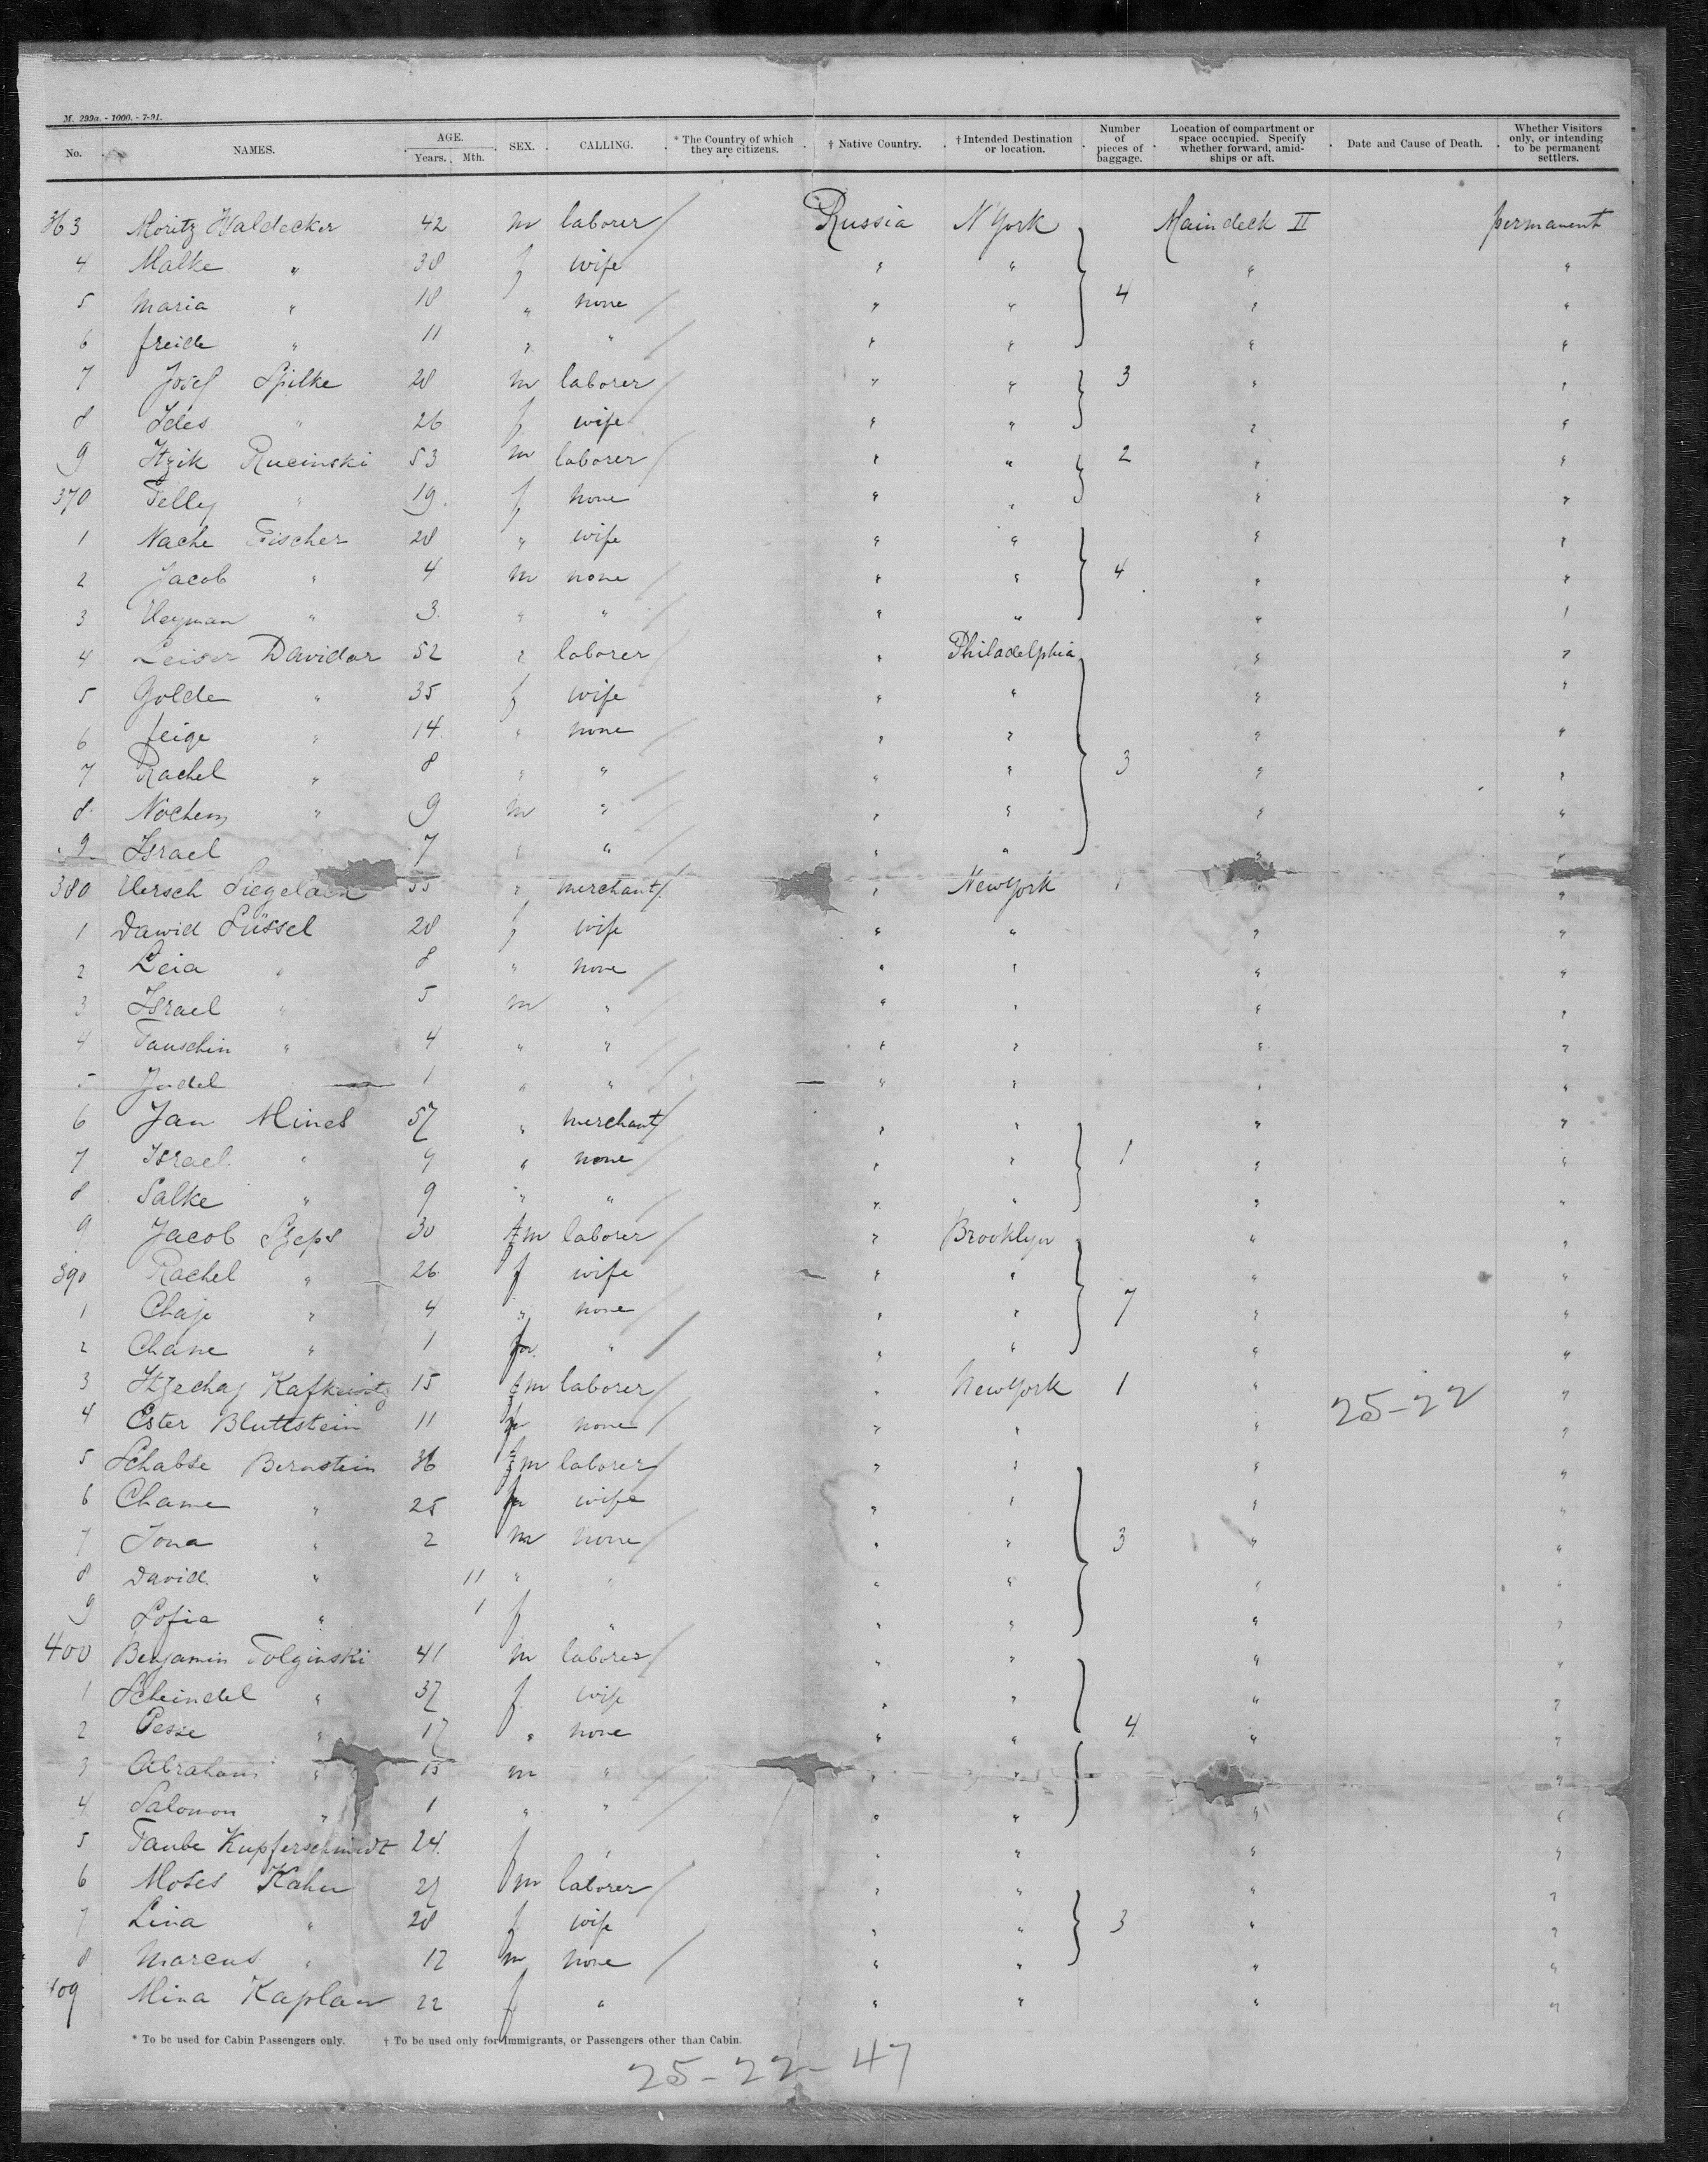 M. 299a. - 1000. - 7-91.
No. NAMES. AGE. Years. Mth. SEX. CALLING. * The Country of which they are citizens. † Native Country. † Intended Destination or location. Number of pieces of baggage. Location of compartment or space occupied. Specify whether forward, amidships or aft. Date and Cause of Death. Whether Visitors only, or intending to be permanent settlers.
363 Moritz Waldecker 42 m laborer / Russia N York Maindeck II permanent
4 Malke " 38 f wife " " " "
5 Maria " 18 " none / " " 4 " "
6 freide " 11 " " / " " " "
7 Josef Spilke 28 m laborer / " " 3 " "
8 Ides " 26 f wife " " " "
9 Itzik Rucinski 53 m laborer / " " 2 " "
370 Telly " 19 f none " " " "
1 Nache Fischer 28 " wife " " " "
2 Jacob " 4 m none / " " 4 " "
3 Heyman " 3 " " / " " " "
4 Leiser Davidor 52 " laborer / " Philadelphia " "
5 Golde " 35 f wife " " " "
6 feige " 14 " none / " " " "
7 Rachel " 8 " " / " " 3 " "
8 Nochem " 9 m " / " " " "
9 Israel 7 " " / " " " "
380 Hersch 55 " merchant / " New York 1 "
1 Dawid Süssel 28 f wife " " " "
2 Leia " 8 " none / " " " "
3 Israel " 5 m " / " " " "
4 Tauschin " 4 " " / " " " "
5 Judel 1 " " / " " " "
6 Jan Mines 57 " merchant / " " " "
7 Israel " 9 " none / " " 1 " "
8 Salke " 9 " " / " " " "
9 Jacob Szeps 30 m laborer / " Brooklyn " "
390 Rachel " 26 f wife " " " "
1 Chaje " 4 " none / " " 7 " "
2 Chane " 1 " / " " " "
3 Kafkewitz 15 m laborer / " New York 1 " "
25-22
4 Ester Bluttstein 11 none / " " " "
5 Schabse Bernstein 36 m laborer / " " " "
6 Chame " 25 wife " " " "
7 Jona " 2 m none / " " 3 " "
8 David " 11 " " " " " "
9 Sofia " 1 f " " " " "
400 Benjamin Tolginski 41 m laborer / " " " "
1 Scheindel " 37 f wife " " " "
2 Pesse " 17 " none " " 4 " "
3 Abraham " 15 m " / " " "
4 Salomon " 1 " " / " " " "
5 Taube Kupferschmidt 24 f " " " " "
6 Moses Kahn 27 m laborer / " " " "
7 Lina " 28 f wife " " 3 " "
8 Marcus " 12 m none / " " " "
409 Mina Kaplan 22 f " " " " "
* To be used for Cabin Passengers only. † To be used only for Immigrants, or Passengers other than Cabin.
25-22-47